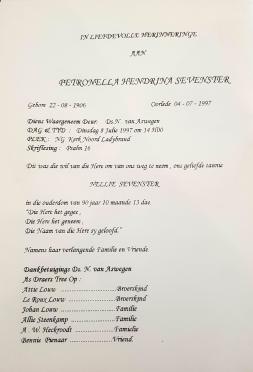 IN LIEFDEVOLLE HERINNERINGE
AAN
PETRONELLA HENDRINA SEVENSTER
Gebore 22 - 08 - 1906 Oorlede 04 - 07 - 1997
Diens Waargeneem Deur: Ds.N. van Aswegen
DAG & TYD : Dinsdag 8 Julie 1997 om 14 H00
PLEK : NG Kerk Noord Ladybrand
Skriflesing : Psalm 16
Dit was die wil van die Here om van ons weg te neem , ons geliefde tannie
NELLIE SEVENSTER
in die ouderdom van 90 jaar 10 maande 13 dae.
"Die Here het gegee ,
Die Here het geneem ,
Die Naam van die Here sy geloofd."
Namens haar verlangende Familie en Vriende.
Dankbetuigings Ds. N. van Aswegen
As Draers Tree Op :
Attie Louw ........................Broerskind
Le Roux Louw ....................Broerskind
Johan Louw ......................Familie
Allie Steenkamp ..................Familie
A . W. Heckroodt ................Famielie
Bennie Pienaar ..................Vriend.